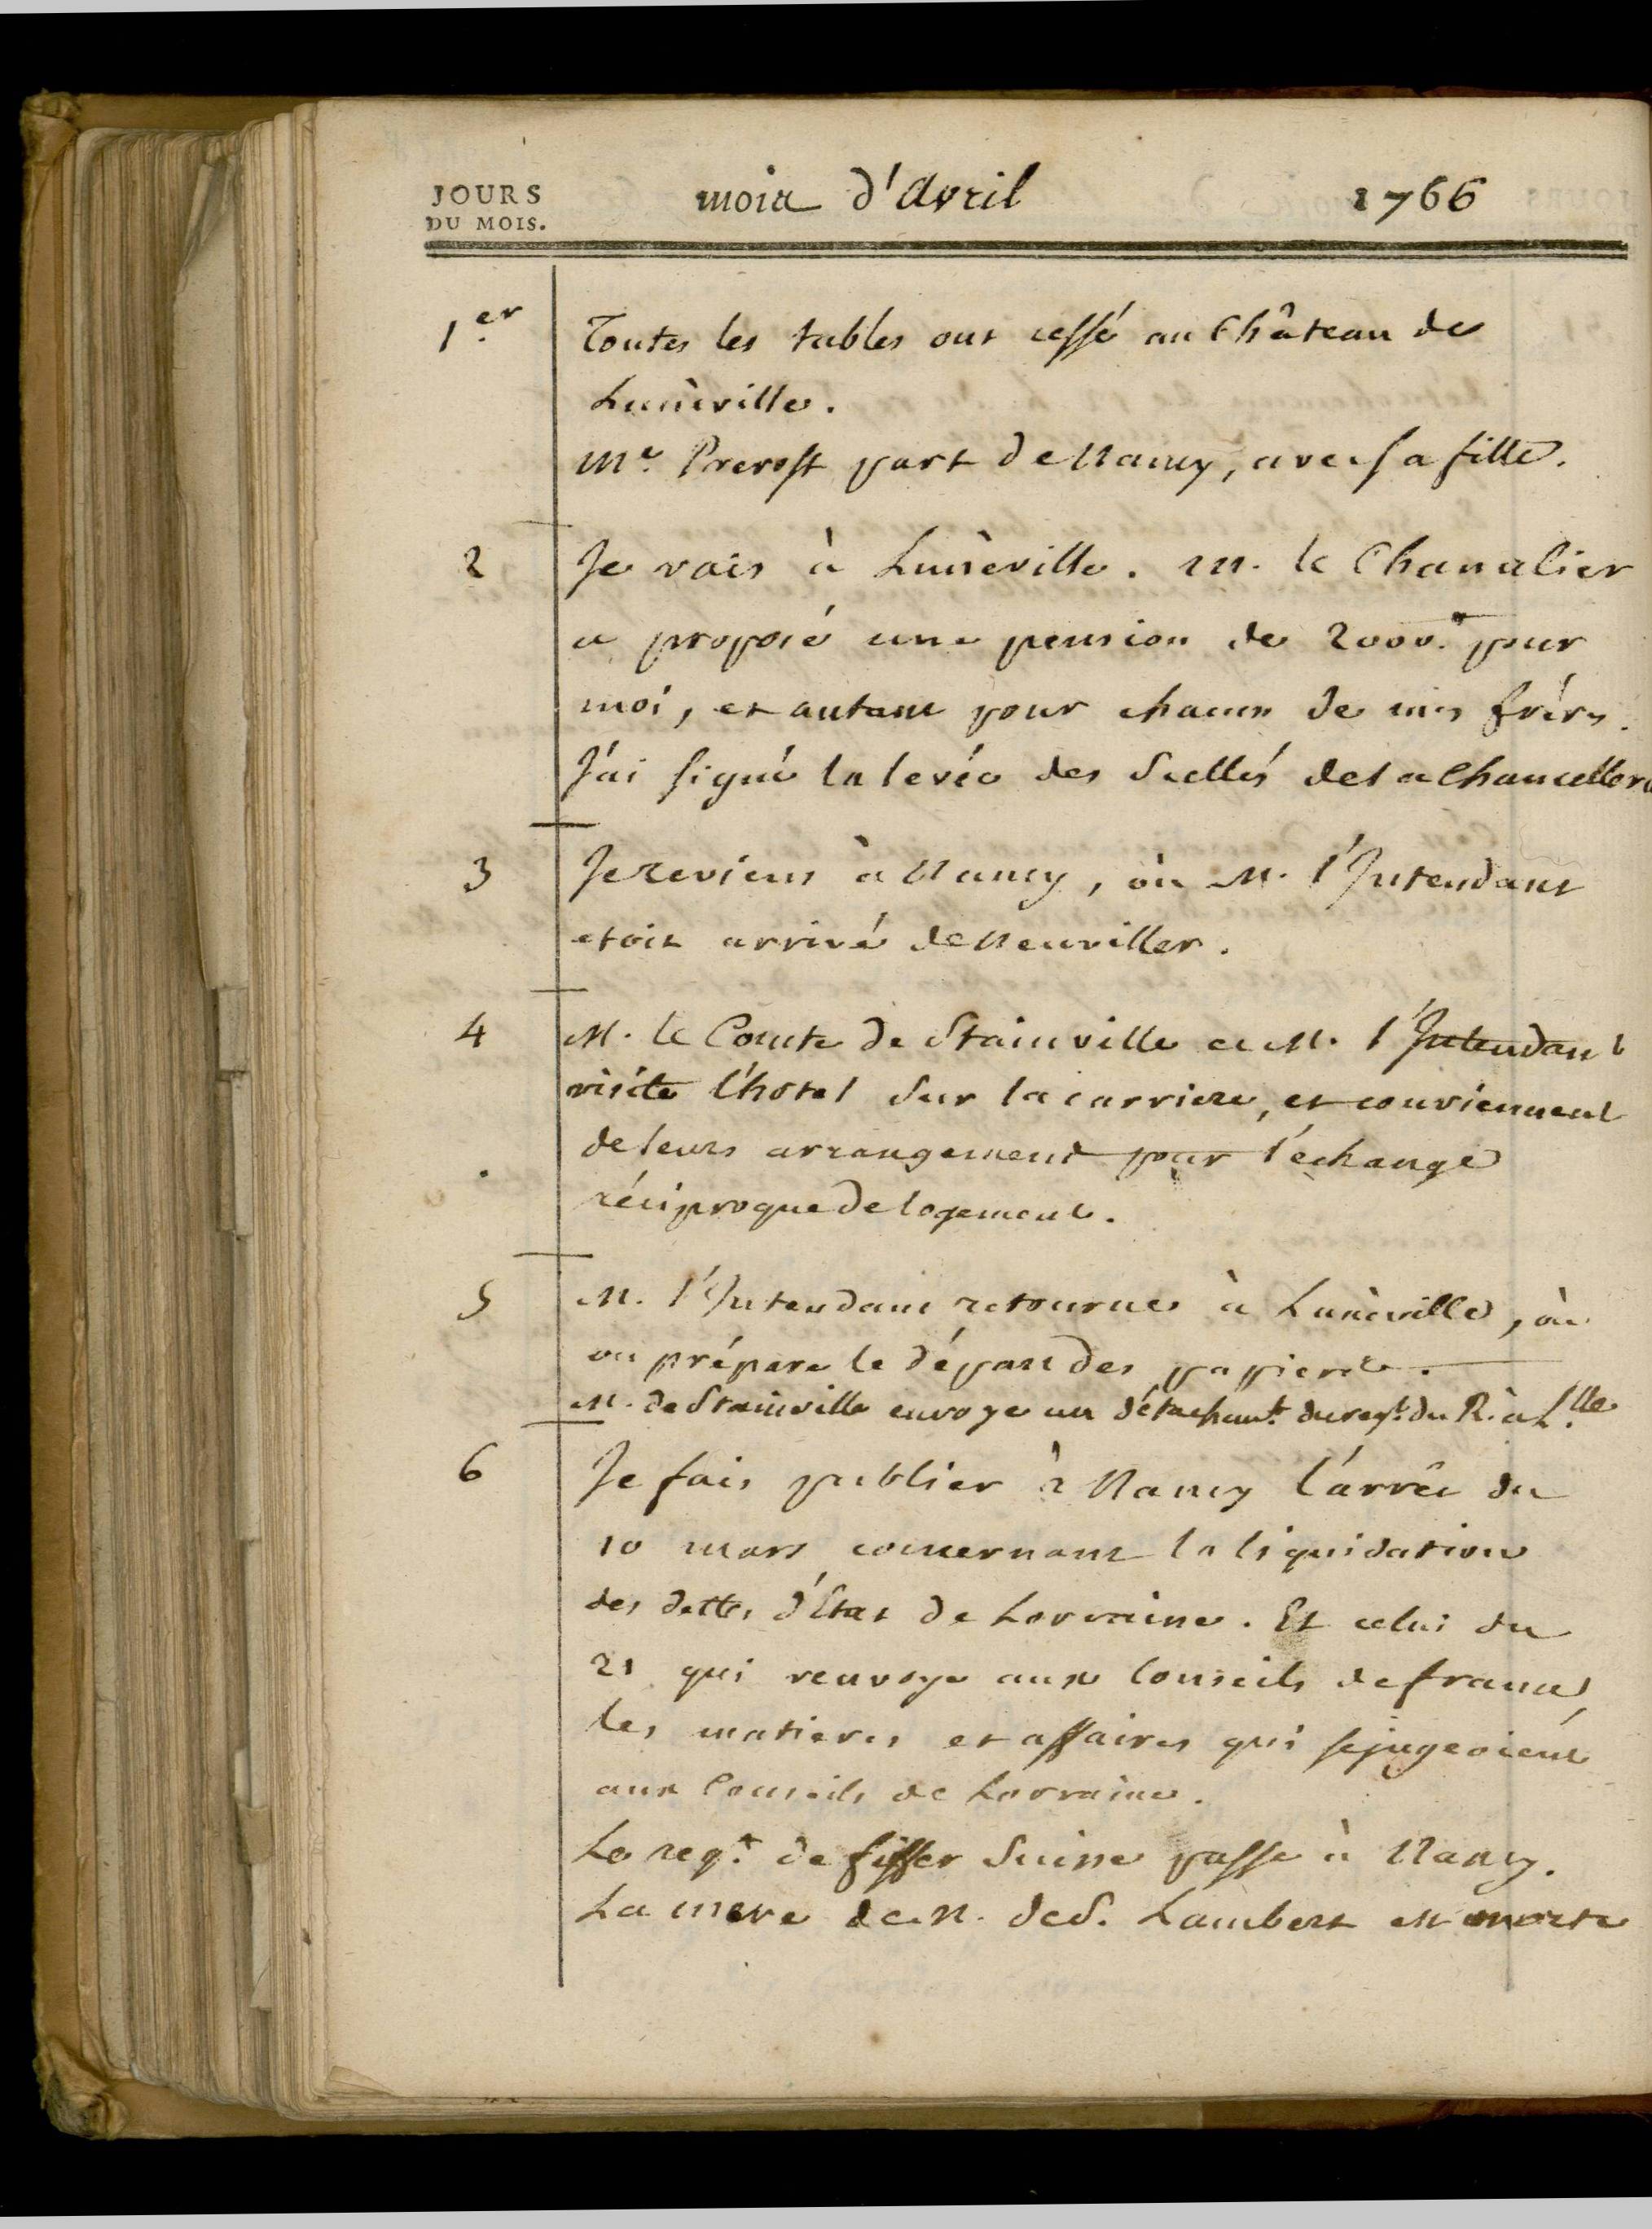 JOURS
DU MOIS.
mois d'Avril 1766
1.er Toutes les tables ont cessé au Château de
Lunéville.
Mr. Prevost part de Nancy, avec sa fille.
2 Je vais à Lunéville. M. le Chancelier
a proposé une pension de 2000.# pour
moi, et autant pour chacun de mes frères.
J'ai signé la levée des Scellés de la Chancellerie
3 Je reviens à Nancy, où M. l'Intendant
etoit arrivé de Neuviller.
4 M. le Comte de Stainville et M. l'Intendant
visite l'hotel Sur la carriere, et conviennent
de leurs arrangement pour l'échange
réciproque de logement.
5 M. l'Intendant retourne à Lunéville, où
on prépare le départ des papiers.
M. de Stainville envoye un détachem.t du reg.t du R. à L.lle
6 Je fais publier à Nancy l'arrêt du
10 mars concernant la liquidation
des dettes d'Etat de Lorraine. Et celui du
21 qui renvoye aux Conseils de france,
les matieres et affaires qui se jugeoient
aux Conseils de Lorraine.
Le reg.t de fiffer Suisse passe à Nancy.
La mere de M. de S. Lambert est morte